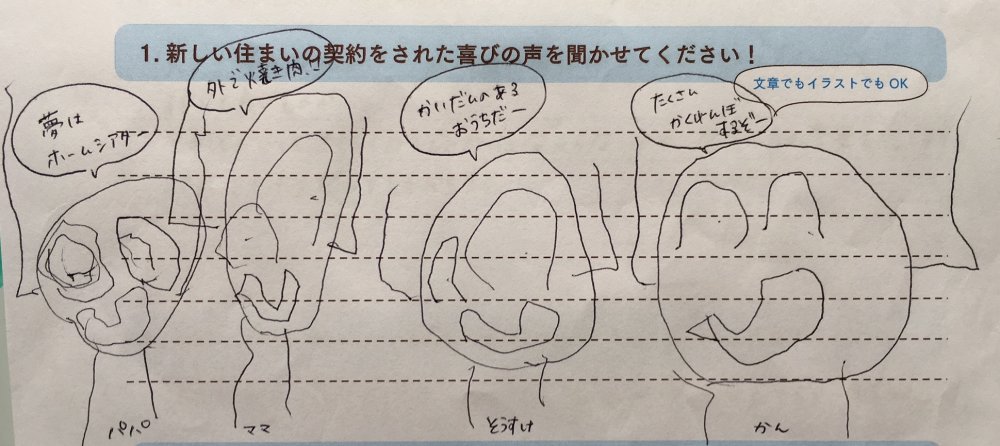 1. 新しい住まいの契約をされた喜びの声を聞かせてください！
文章でもイラストでもOK
夢は
ホームシアター
外で焼き肉!!
かいだんのある
おうちだー
たくさん
かくれんぼ
するぞー
パパ
ママ
そうすけ
かん